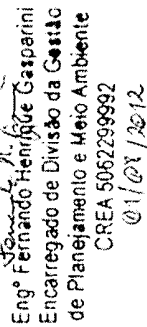 Engº Fernando Henrique Gasparini
Encarregado de Divisão da Gestão
de Planejamento e Meio Ambiente
CREA 5062299992
01/08/2012